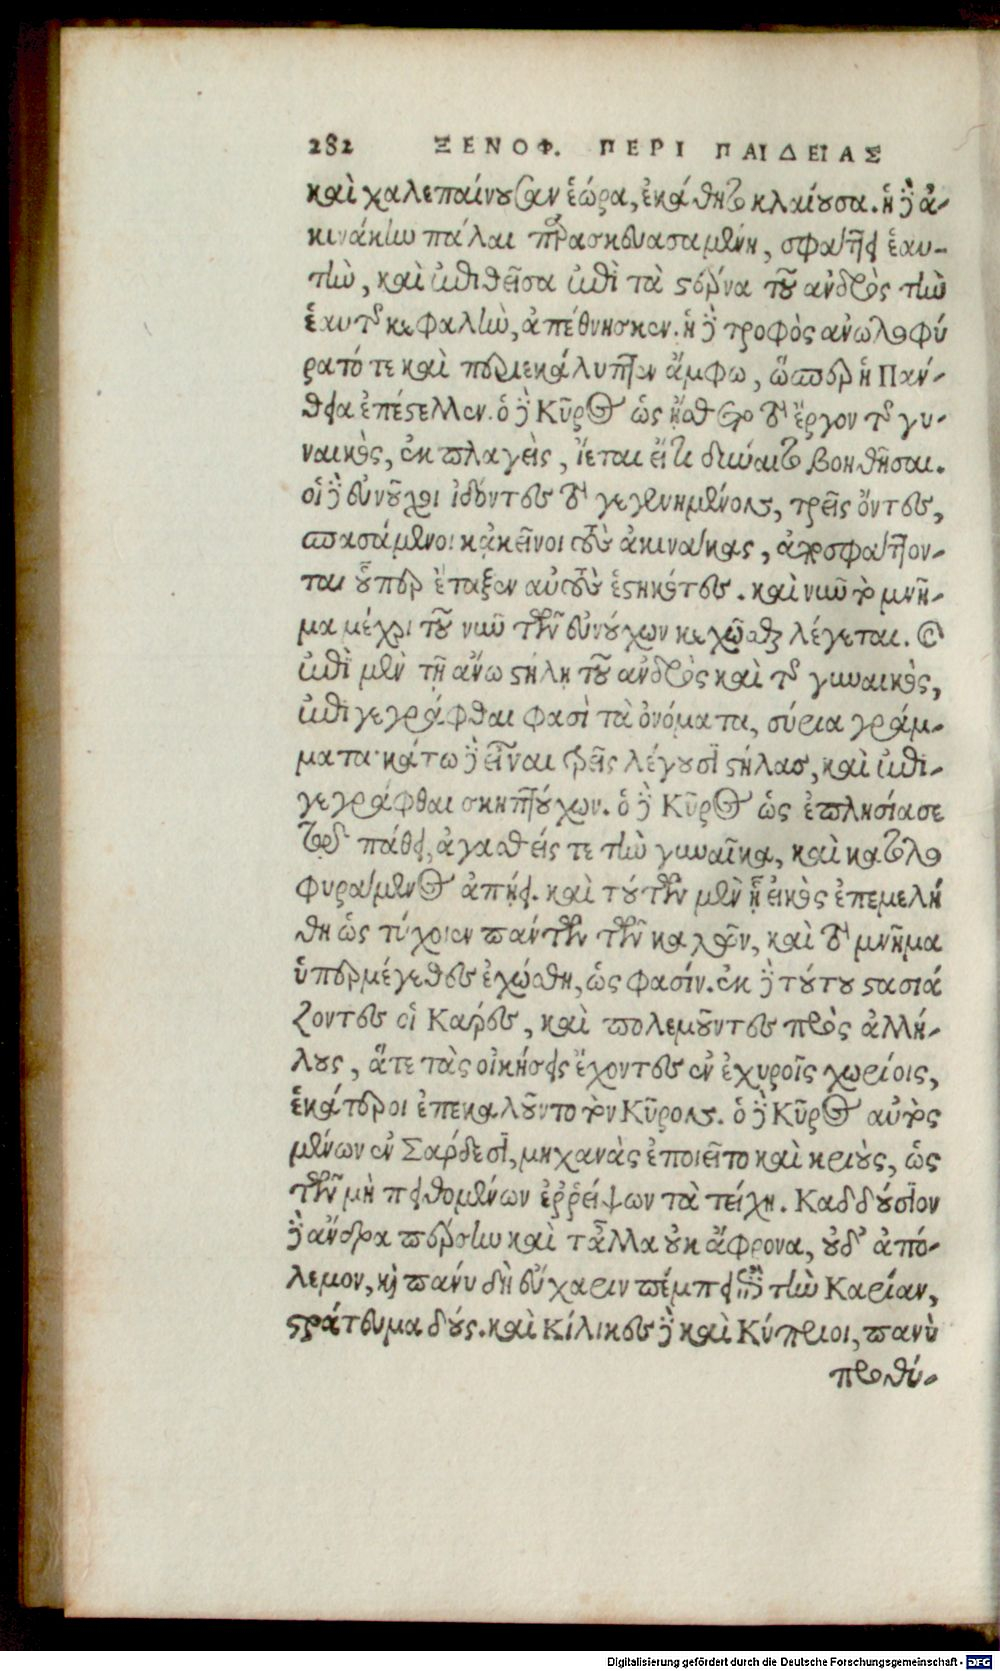 282 ΞΕΝΟΦ. ΠΕΡΙ ΠΑΙΔΕΙΑΣ
καὶ χαλεπαίνουσαν ἑώρα, ἐκάθητο κλαίουσα. ἡ δὲ ἀ-
κινάκην πάλαι παρασκευασαμένη, σφάττει ἑαυ-
τὴν, καὶ ἐπιθεῖσα ἐπὶ τὰ στέρνα τοῦ ἀνδρὸς τὴν
ἑαυτῆς κεφαλὴν, ἀπέθνησκεν. ἡ δὲ τροφὸς ἀνωλοφύ
ρατό τε καὶ περιεκάλυπτεν ἄμφω, ὥσπερ ἡ Πάν-
θεια ἐπέστελλεν. ὁ δὲ Κῦρος ὡς ᾔσθετο τὸ ἔργον τῆς γυ-
ναικὸς, ἐκπλαγεὶς, ἵεται εἴ τι δύναιτο βοηθῆσαι.
οἱ δὲ εὐνοῦχοι ἰδόντες τὸ γεγενημένον, τρεῖς ὄντες,
σπασάμενοι κἀκεῖνοι τοὺς ἀκινάκας, ἀποσφάττον-
ται οὗπερ ἔταξεν αὐτοὺς ἑστηκότες. καὶ νῦν τὸ μνῆ-
μα μέχρι τοῦ νῦν τῶν εὐνούχων κεχῶσθαι λέγεται. καὶ
ἐπὶ μὲν τῇ ἄνω στήλῃ τοῦ ἀνδρὸς καὶ τῆς γυναικὸς,
ἐπιγεγράφθαι φασὶ τὰ ὀνόματα, σύρια γράμ-
ματα· κάτω δὲ εἶναι τρεῖς λέγουσι στήλας, καὶ ἐπι-
γεγράφθαι σκηπτούχων. ὁ δὲ Κῦρος ὡς ἐπλησίασε
τῷ πάθει, ἀγασθείς τε τὴν γυναῖκα, καὶ κατολο
φυράμενος ἀπῄει. καὶ τούτων μὲν ᾗ εἰκὸς ἐπεμελή
θη ὡς τύχοιεν πάντων τῶν καλῶν, καὶ τὸ μνῆμα
ὑπερμέγεθες ἐχώσθη, ὡς φασίν. ἐκ δὲ τούτου στασιά
ζοντες οἱ Κάρες, καὶ πολεμοῦντες πρὸς ἀλλή-
λους, ἅτε τὰς οἰκήσεις ἔχοντες ἐν ἐχυροῖς χωρίοις,
ἑκάτεροι ἐπεκαλοῦντο τὸν Κῦρον. ὁ δὲ Κῦρος αὐτὸς
μένων ἐν Σάρδεσι, μηχανὰς ἐποιεῖτο καὶ κριοὺς, ὡς
τῶν μὴ πειθομένων ἐῤῥείψων τὰ τείχη. Καδδούσιον
δὲ ἄνδρα πέρσην καὶ τἆλλα οὐκ ἄφρονα, οὐδ᾽ ἀπό-
λεμον, καὶ πάνυ δὴ εὔχαριν πέμπει ἐπὶ τὴν Καρίαν,
στράτευμα δούς. καὶ Κίλικες δὲ καὶ Κύπριοι, πανὺ
προθύ-
Digitalisierung gefördert durch die Deutsche Forschungsgemeinschaft - DFG